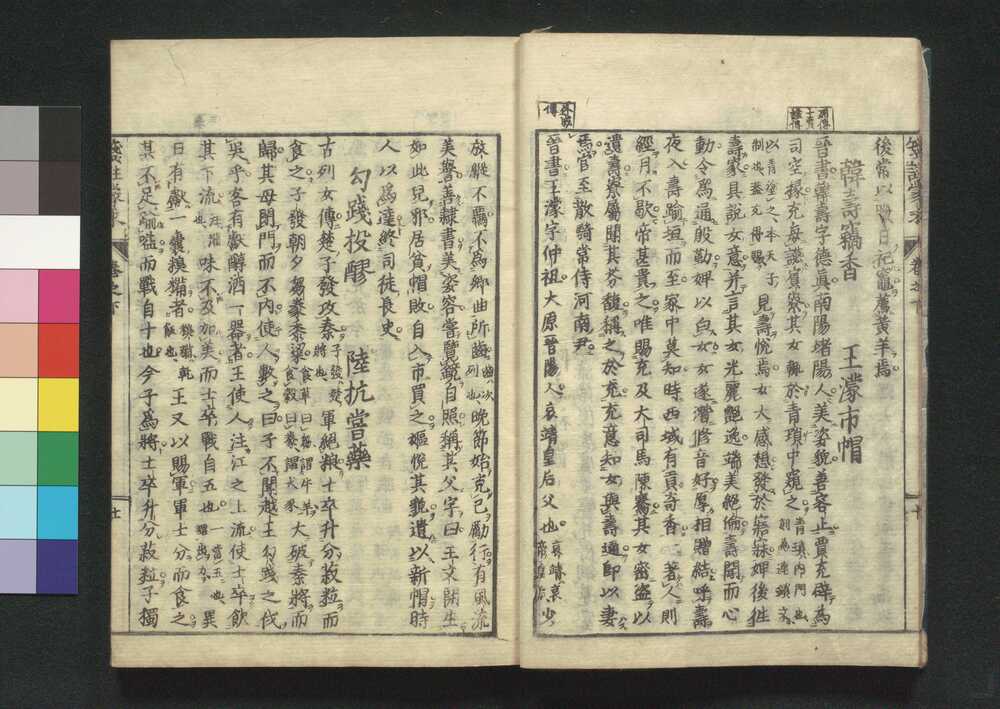 後常以臘日祀竈薦黃羊焉
韓壽竊香　王濛市帽
晉書韓壽字德眞南陽堵陽人美姿貌善容止賈充辟爲
司空掾充每讌賓寮其女輒於青瑣中窺之
見壽悅焉女大感想發於寤寐婢後往
壽家具說女意幷言其女光麗艶逸端美絕倫壽聞而心
動令爲通殷勤婢以白女女遂潛修音好厚相贈結呼壽
夜入壽踰垣而至家中莫知時西域有貢奇香一著人則
經月不歇帝甚貴之唯賜充及大司馬陳騫其女密盜以
遺壽寮屬聞其芬馥稱之於充充意知女與壽通卽以妻
焉官至散騎常侍河南尹
晉書王濛字仲祖大原晉陽人哀靖皇后父也
少
放縱不羈不爲鄉曲所齒
晚節始克己勵行有風流
美譽善隷書美姿容嘗覽鏡自照稱其父字曰王文開生
如此兒邪居貧帽敗自入市買之嫗悅其貌遺以新帽時
人以爲達終司徒長史
勾踐投醪　陸抗嘗藥
古列女傳楚子發攻秦
子發楚將也
軍絕糧士卒升分菽粒而
食之子發朝夕芻豢黍粱
大破秦將而
歸其母閉門而不內使人數之曰子不聞越王勾踐之伐
吳乎客有獻醇酒一器者王使人注江之上流使士卒飲
其下流
味不及加美而士卒戰自五也
異
日有獻一囊糗糒者
王又以賜軍軍士分而食之
其不足踰嗌而戰自十也今子爲將士卒升分菽粒子獨